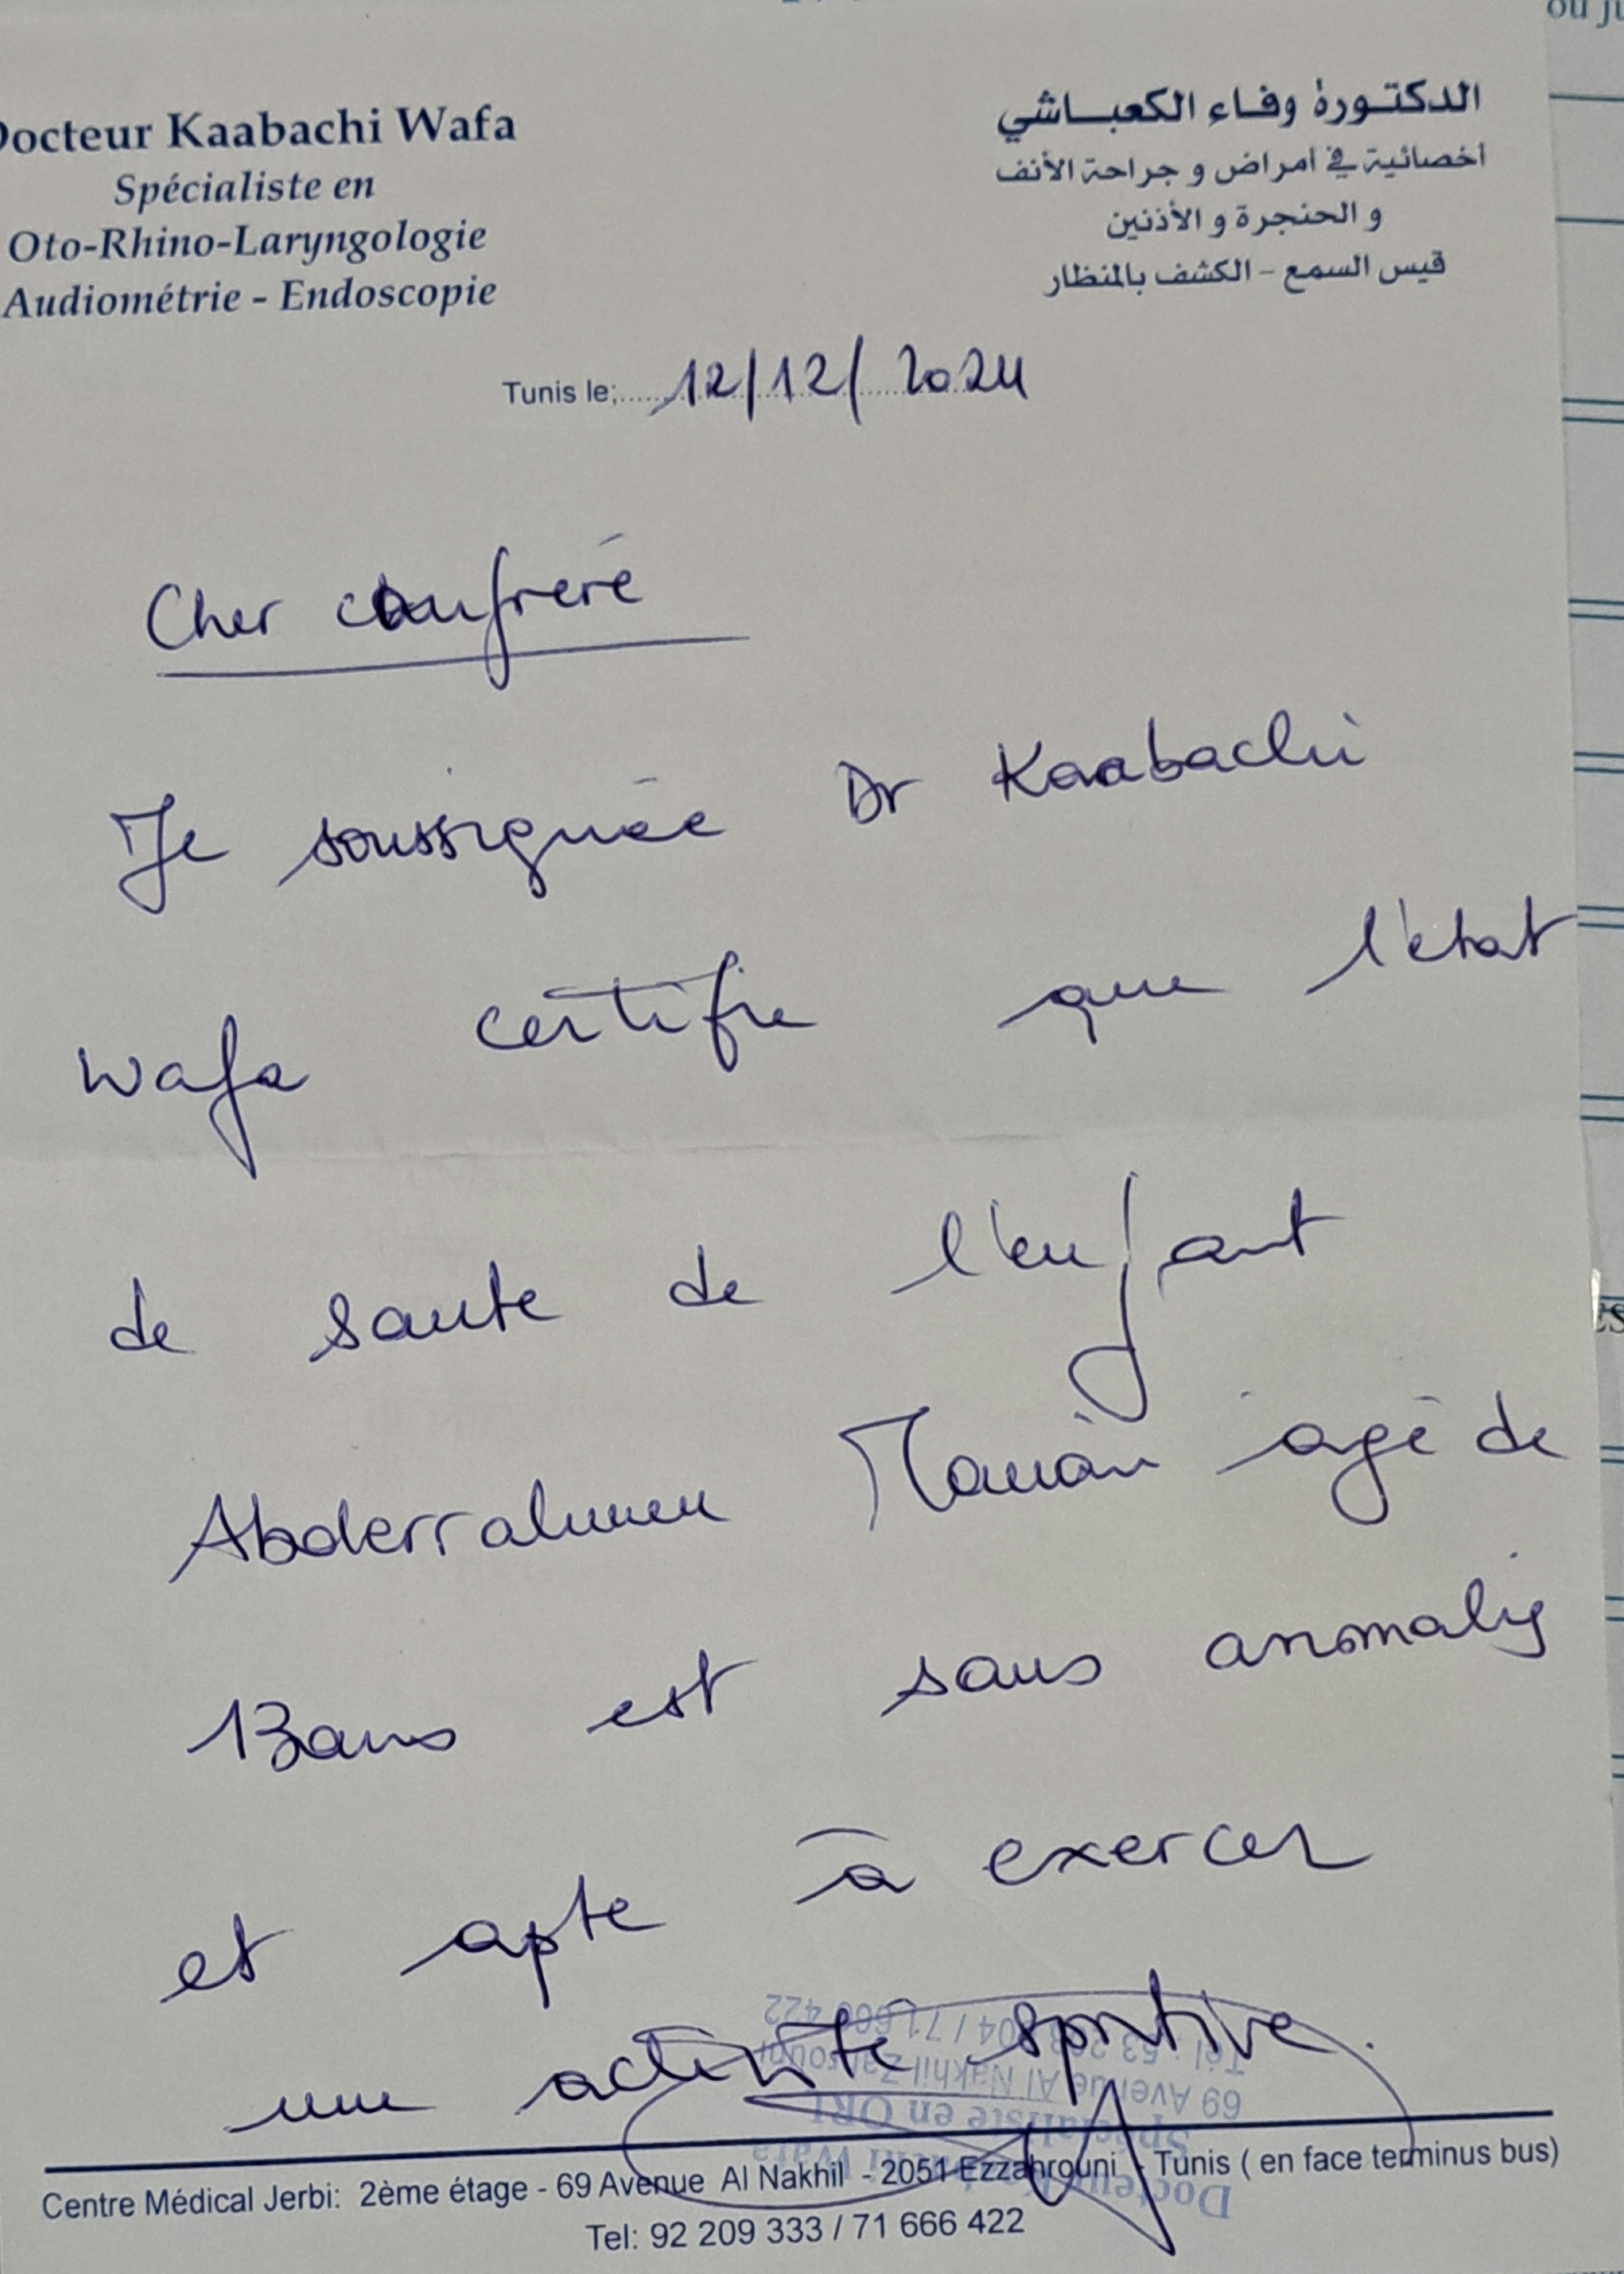 ou ju
Docteur Kaabachi Wafa
Spécialiste en
Oto-Rhino-Laryngologie
Audiométrie - Endoscopie
الدكتورة وفاء الكعباشي
أخصائية في أمراض و جراحة الأنف
و الحنجرة و الأذنين
قيس السمع - الكشف بالمنظار
Tunis le: 12/12/2024
Cher confrère
Je soussignée Dr Kaabachi
Wafa certifie que l'état
de santé de l'enfant
Abderrahmen agé de
13 ans est sans anomalies
et apte à exercer
une activité sportive.
ES
Docteur Kaabachi Wafa
Spécialiste en ORL
69 Avenue Al Nakhil Ezzahrouni
71 666 422
Centre Médical Jerbi: 2ème étage - 69 Avenue Al Nakhil - 2051 Ezzahrouni - Tunis ( en face terminus bus)
Tel: 92 209 333 / 71 666 422